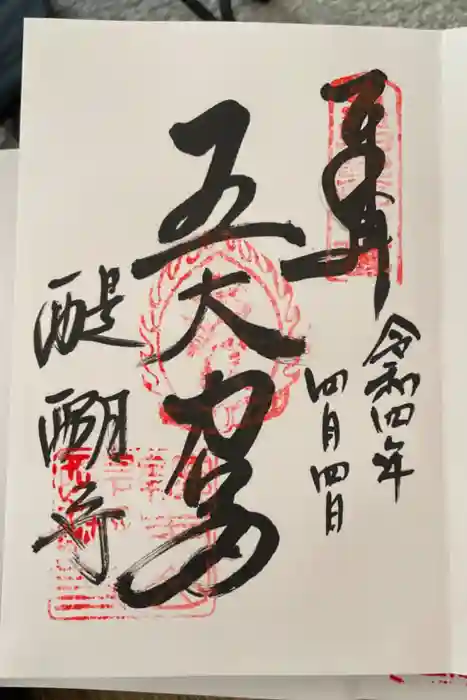 奉拝
令和四年
四月四日
五大力尊
醍醐寺